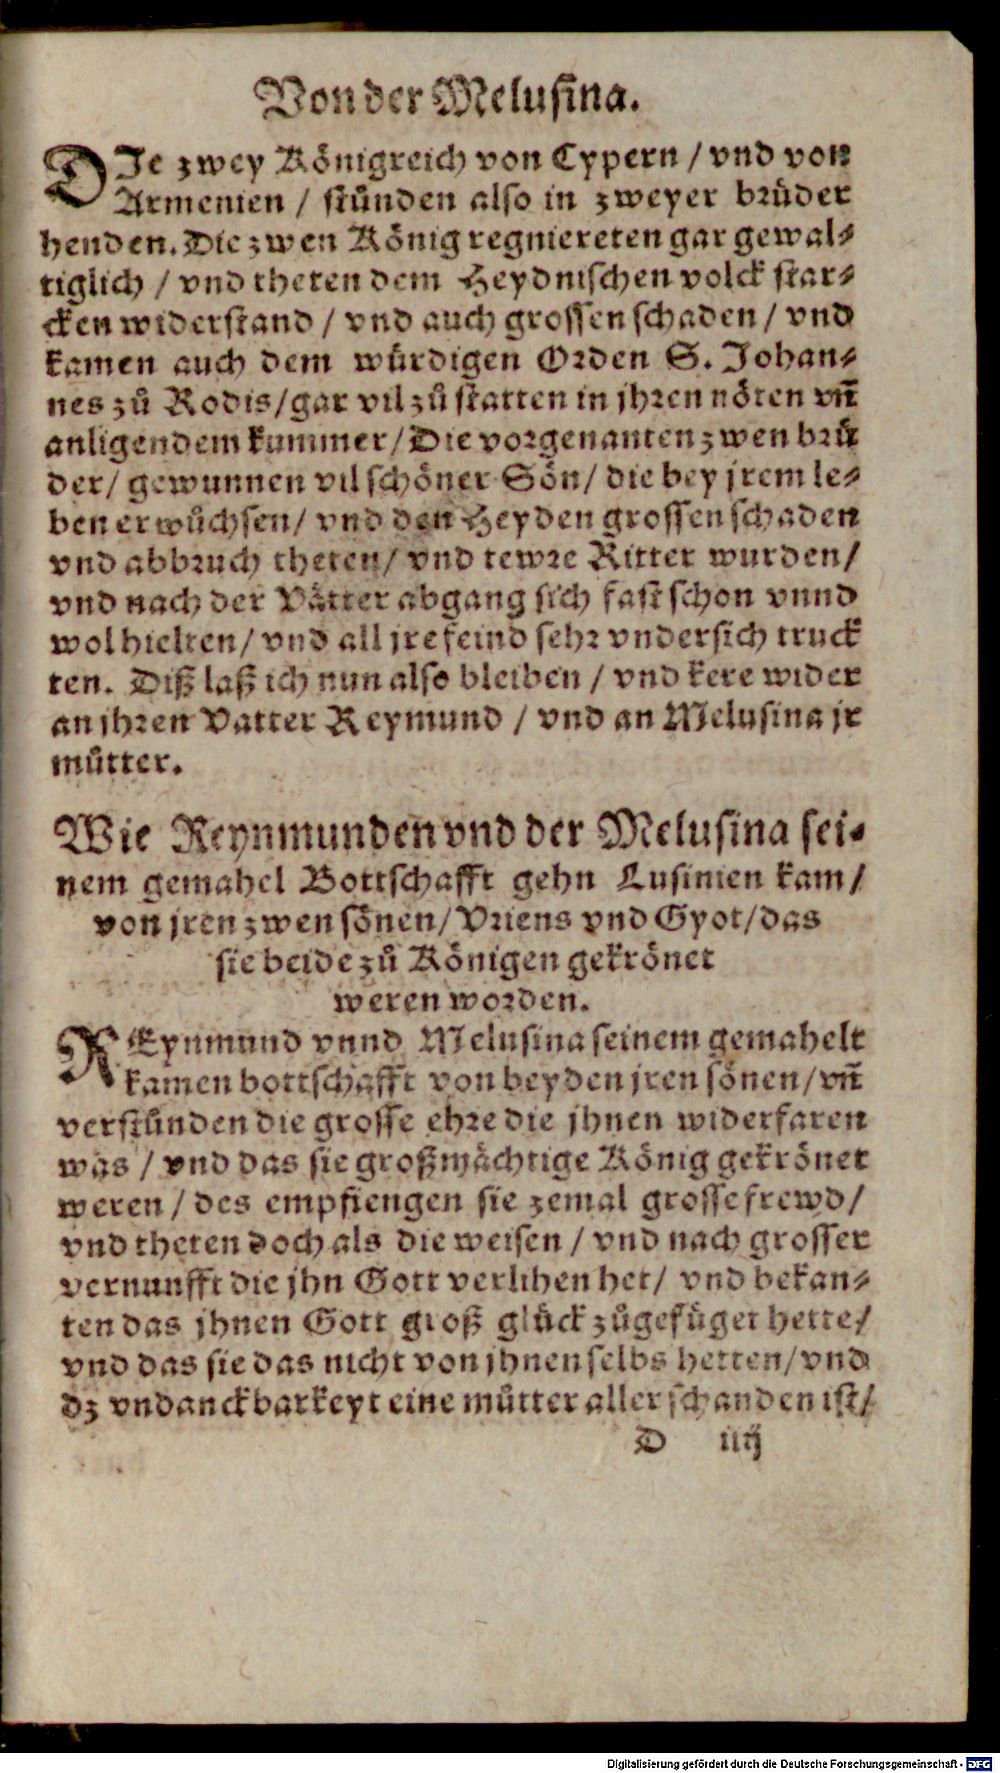 Von der Melusina.
DIe zwey Königreich von Cypern / vnd von
Armenien / stůnden also in zweyer brůder
henden. Die zwen König regniereten gar gewal⸗
tiglich / vnd theten dem Heydnischen volck star⸗
cken widerstand / vnd auch grossen schaden / vnd
kamen auch dem würdigen Orden S. Johan⸗
nes zů Rodis / gar vil zů statten in jhren nöten vñ
anligendem kummer / Die vorgenanten zwen brů
der / gewunnen vil schöner Sön / die bey jrem le⸗
ben erwůchsen / vnd den Heyden grossen schaden
vnd abbruch theten / vnd tewre Ritter wurden /
vnd nach der Vätter abgang sich fast schon vnnd
wol hielten / vnd all jre feind sehr vndersich truck
ten. Diß laß ich nun also bleiben / vnd kere wider
an jhren Vatter Reymund / vnd an Melusina jr
můtter.
Wie Reynmunden vnd der Melusina sei⸗
nem gemahel Bottschafft gehn Lusinien kam /
von jren zwen sönen / Vriens vnd Gyot / das
sie beide zů Königen gekrönet
weren worden.
REynmund vnnd Melusina seinem gemahelt
kamen bottschafft von beyden jren sönen / vñ
verstůnden die grosse ehre die jhnen widerfaren
was / vnd das sie großmächtige König gekrönet
weren / des empfiengen sie zemal grosse frewd /
vnd theten doch als die weisen / vnd nach grosser
vernunfft die jhn Gott verlihen het / vnd bekan⸗
ten das jhnen Gott groß glück zůgefüget hette /
vnd das sie das nicht von jhnen selbs hetten / vnd
dz vndanckbarkeyt eine můtter aller schanden ist /
D iiij
Digitalisierung gefördert durch die Deutsche Forschungsgemeinschaft - DFG